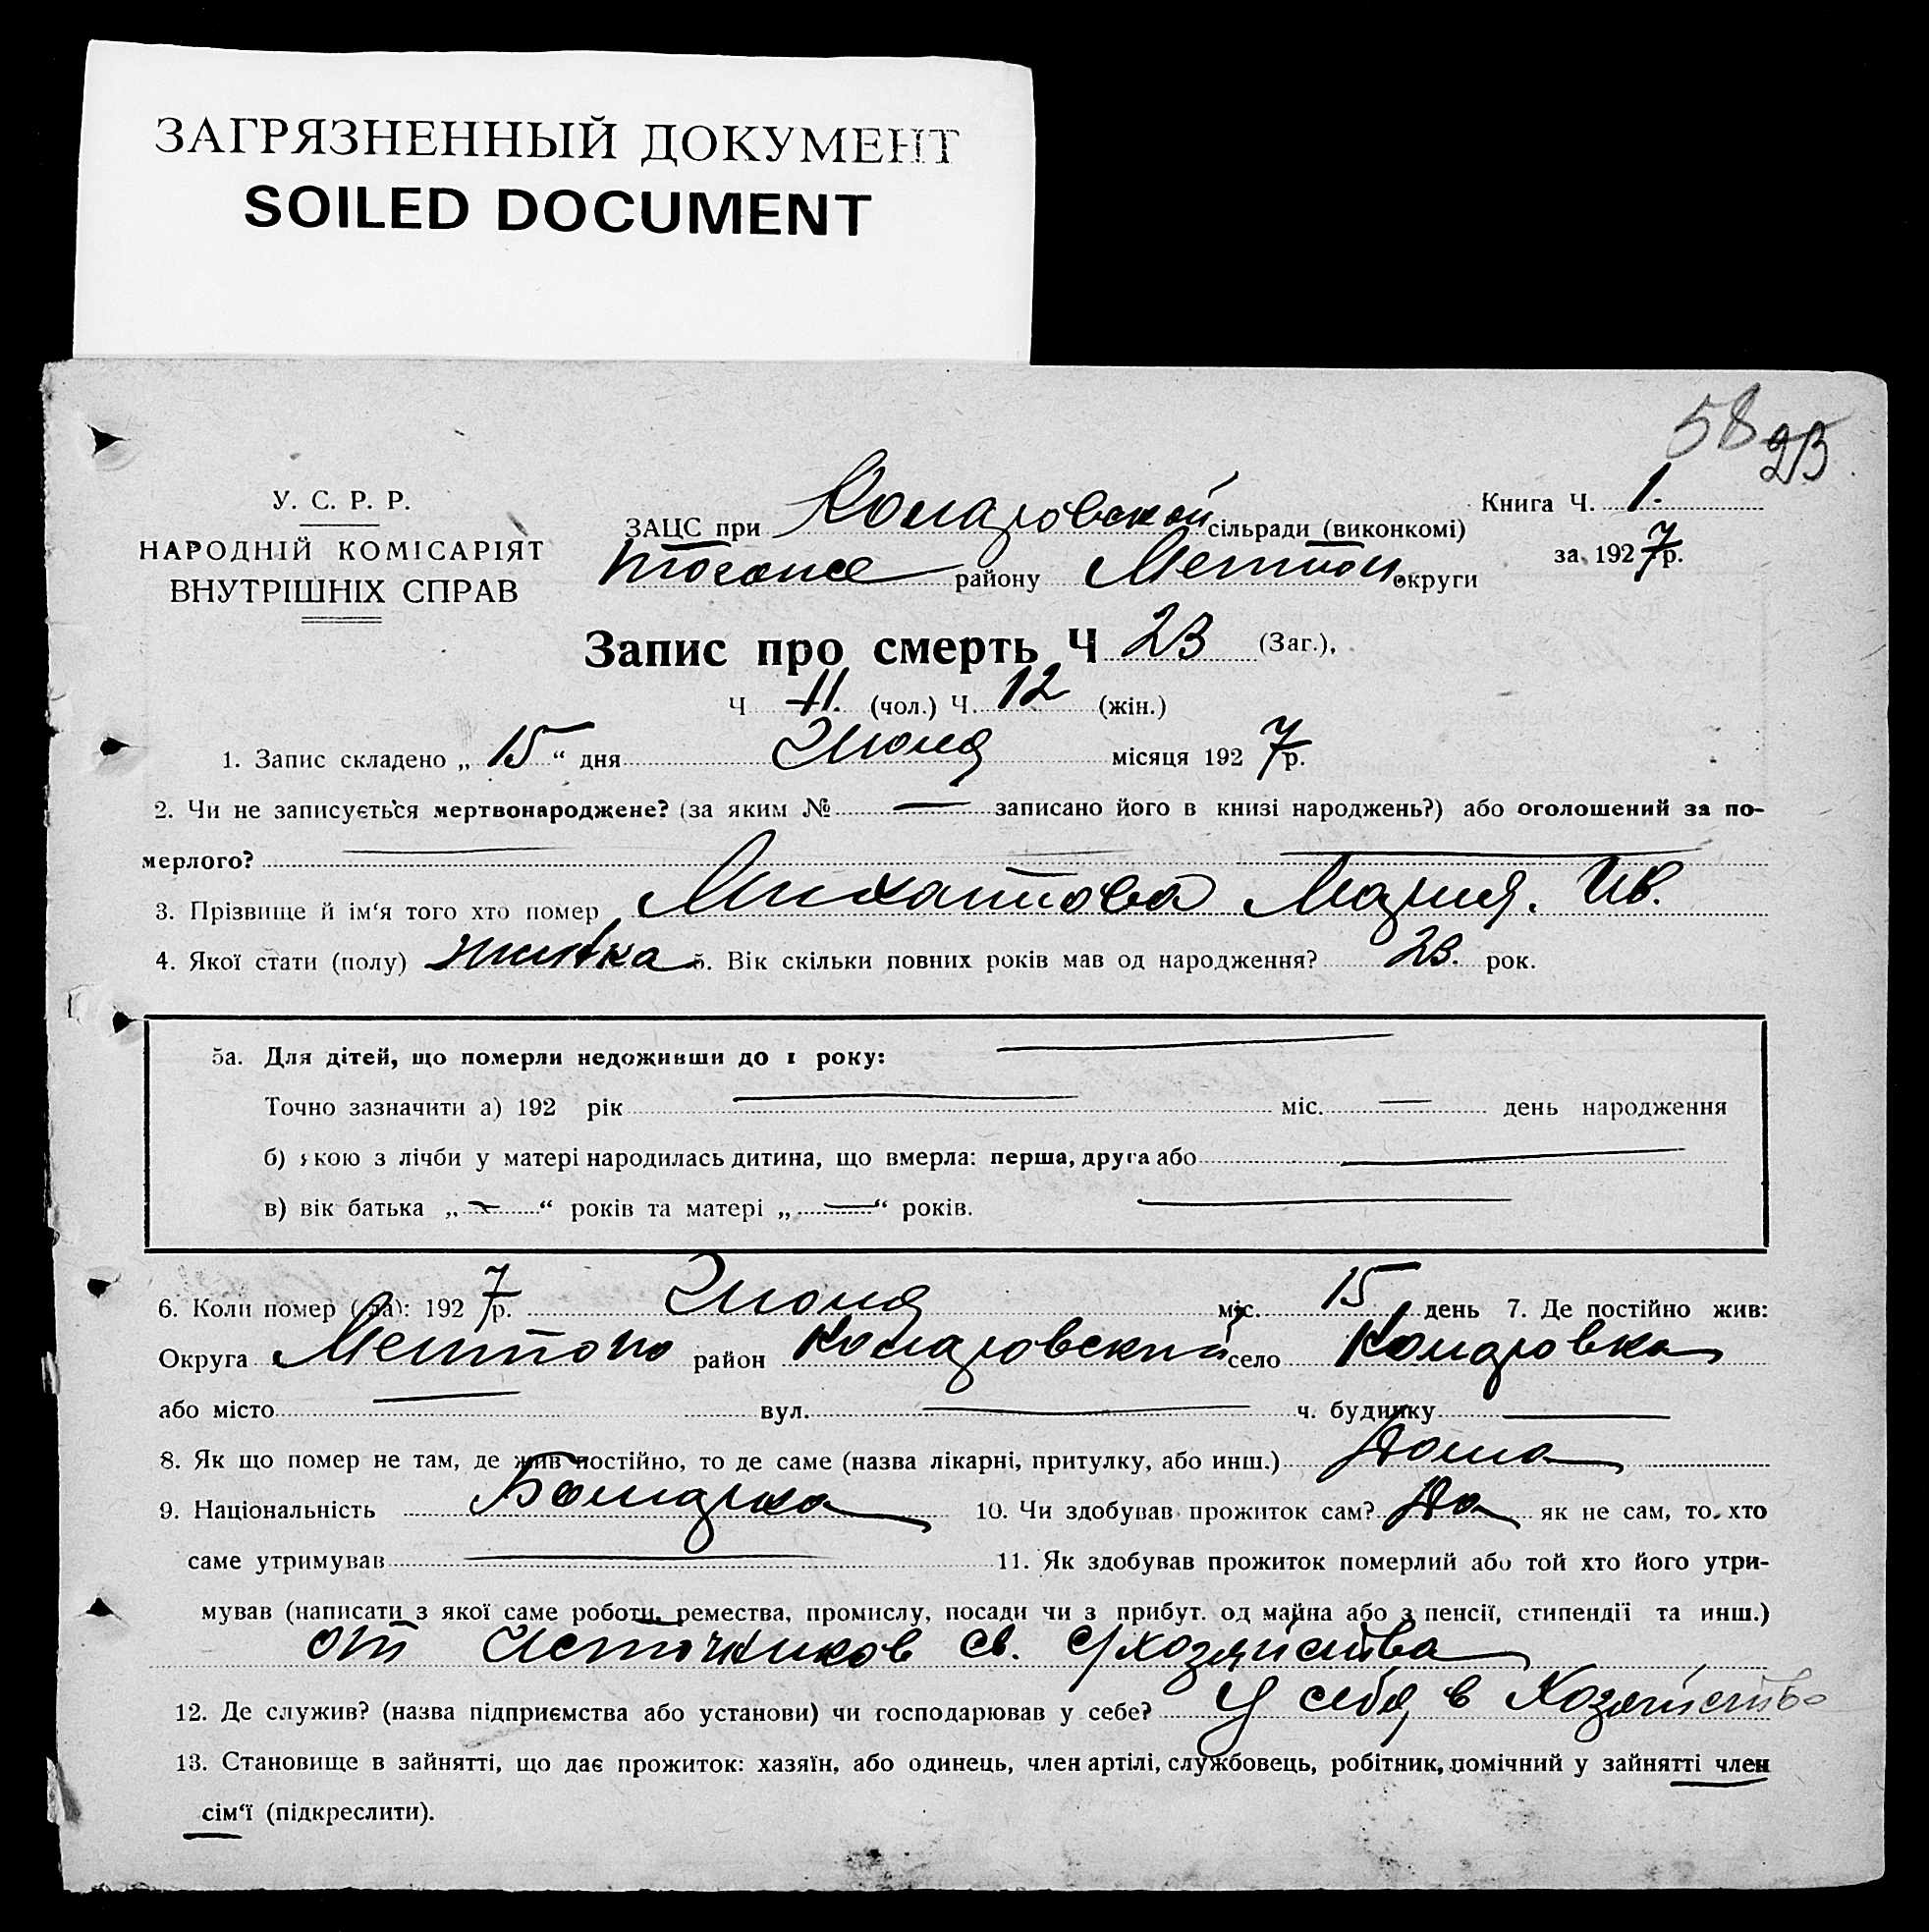 ЗАГРЯЗНЕННЫЙ ДОКУМЕНТ
SOILED DOCUMENT
58 23
У. С. Р. Р.
НАРОДНІЙ КОМІСАРІЯТ
ВНУТРІШНІХ СПРАВ
Книга Ч. 1.
за 1927 р.
ЗАЦС при Комаровской сільради (виконкомі)
району Мелитоп округи
Запис про смерть Ч 23 (Заг.),
Ч 11. (чол.) Ч. 12 (жін.)
1. Запис складено „ 15 “ дня Июня місяця 1927 р.
2. Чи не записується мертвонароджене? (за яким № — записано його в книзі народжень?) або оголошений за по-
мерлого?
3. Прізвище й ім‘я того хто помер Михайлова Мария. Ив.
4. Якої стати (полу) 5. Вік скільки повних років мав од народження? 23. рок.
5а. Для дітей, що померли недоживши до 1 року:
Точно зазначити а) 192 рік — міс. — день народження
б) якою з лічби у матері народилась дитина, що вмерла: перша, друга або —
в) вік батька „ — “ років та матері „ — “ років.
6. Коли помер (ла): 1927 р. Июня міс. 15 день 7. Де постійно жив:
Округа Мелитопо район Комаровский село Комаровка
або місто — вул. — ч. будинку —
8. Як що помер не там, де жив постійно, то де саме (назва лікарні, притулку, або инш.) Дома
9. Національність Болгарка 10. Чи здобував прожиток сам? Да як не сам, то хто
саме утримував — 11. Як здобував прожиток померлий або той хто його утри-
мував (написати з якої саме роботи, ремества, промислу, посади чи з прибут. од майна або з пенсії, стипендії та инш.)
от Источников св. с/хозяйства
12. Де служив? (назва підприємства або установи) чи господарював у себе? У себя в Хозяйстве
13. Становище в зайнятті, що дає прожиток: хазяїн, або одинець, член артілі, службовець, робітник, помічний у зайнятті член
сім‘ї (підкреслити).